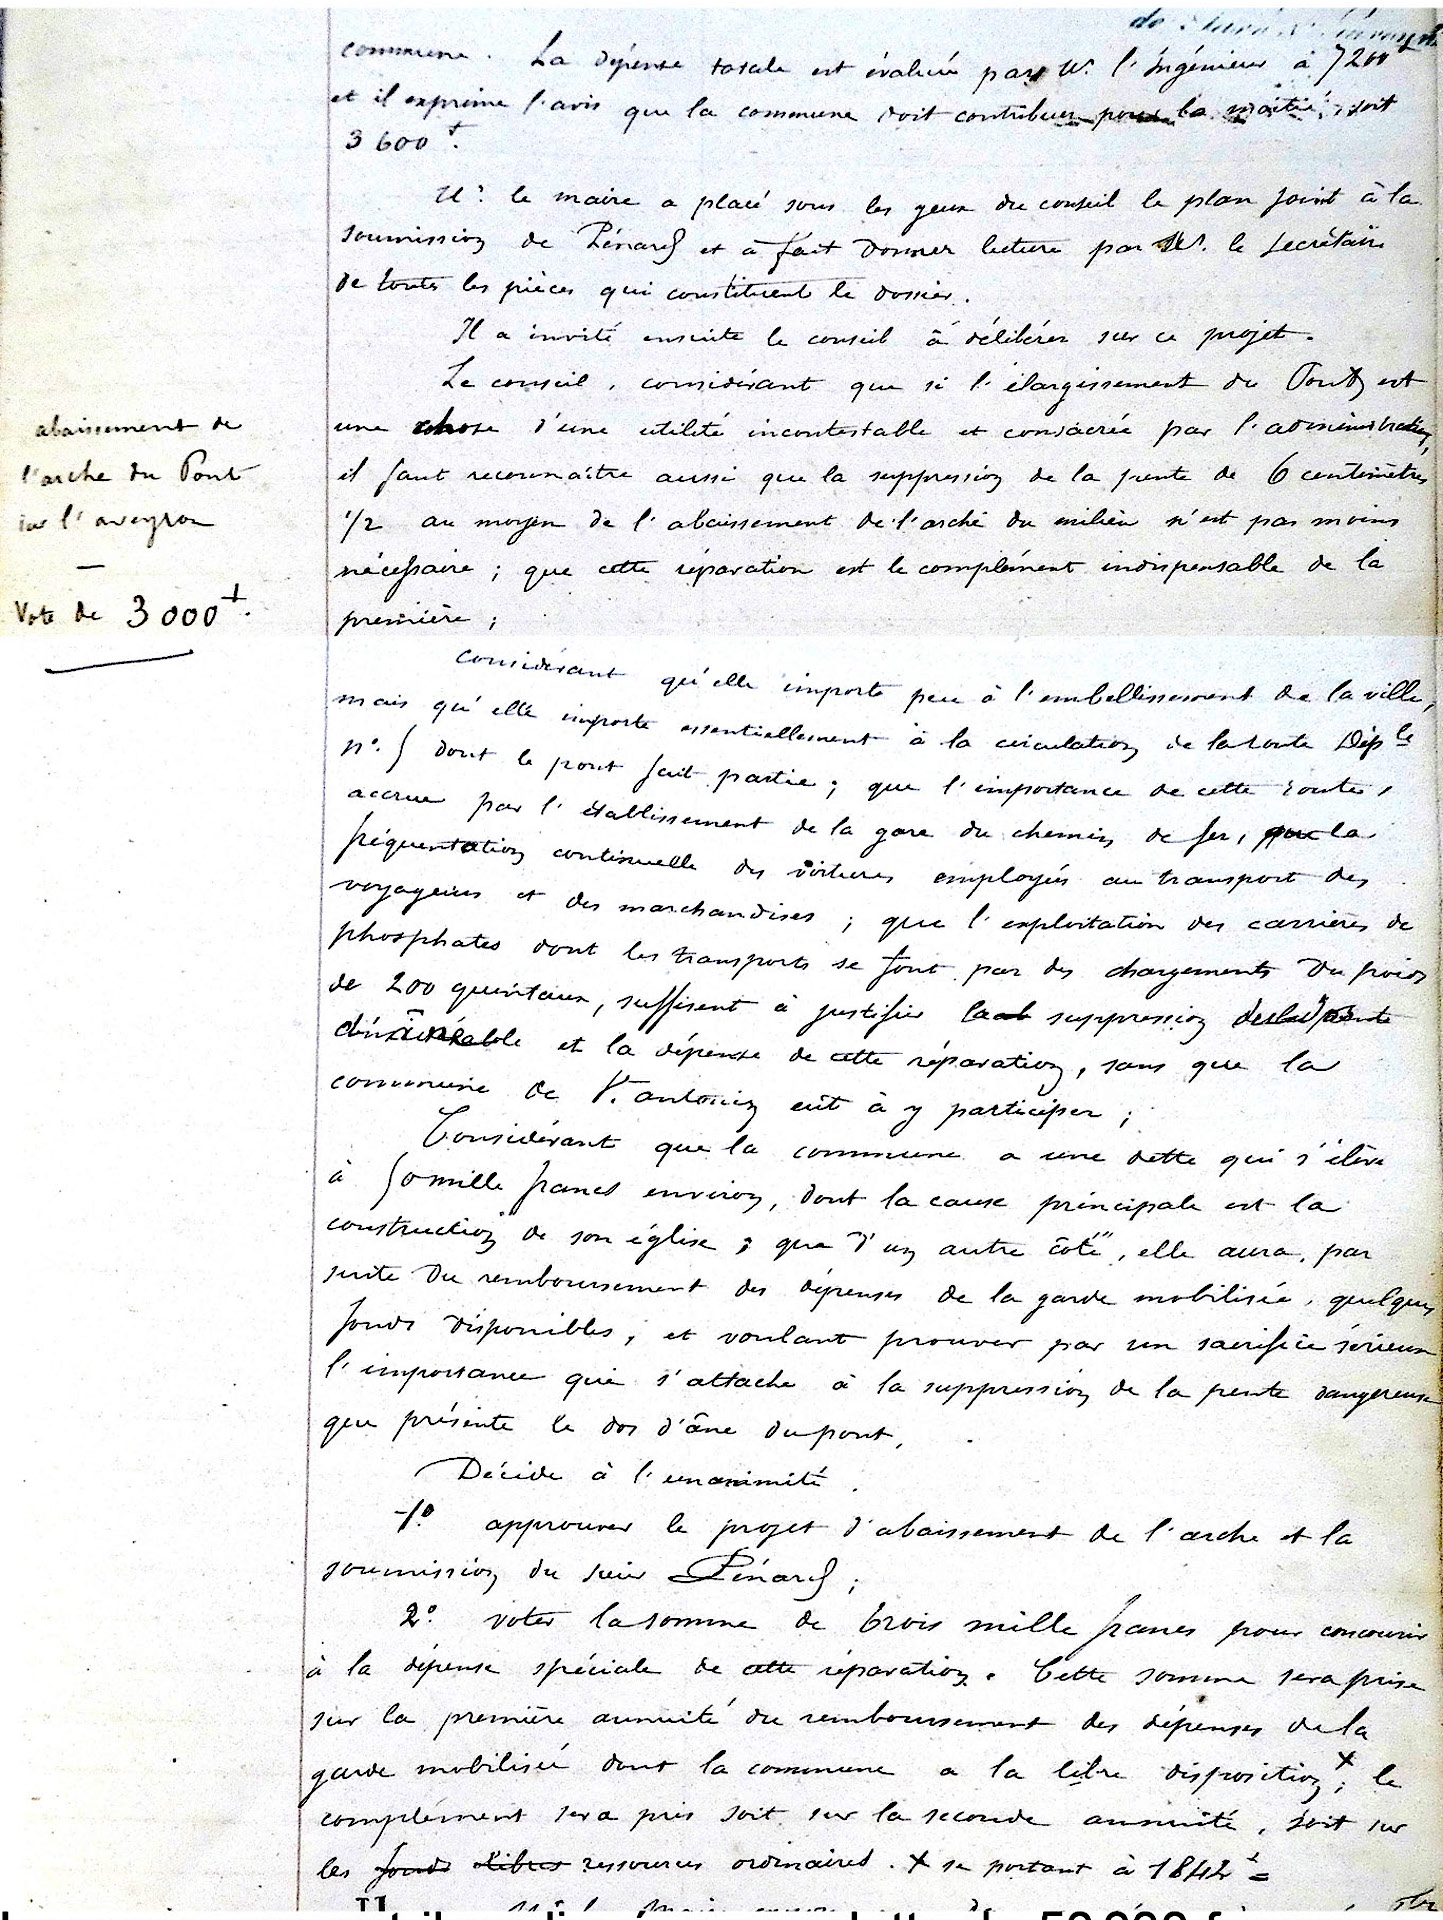 commune. La dépense totale est évaluée par Mr. l'Ingénieur à 7200
et il exprime l'avis que la commune doit contribuer pour la moitié, soit
3600 f.
Mr. le maire a placé sous les yeux du conseil le plan joint à la
soumission de Pénard et a fait donner lecture par Mr. le secrétaire
de toutes les pièces qui constituent le dossier.
Il a invité ensuite le conseil à délibérer sur ce projet.
Le conseil, considérant que si l'élargissement du Pont est
une chose d'une utilité incontestable et consacrée par l'administration,
il faut reconnaître aussi que la suppression de la pente de 6 centimètres
1/2 au moyen de l'abaissement de l'arche du milieu n'est pas moins
nécessaire ; que cette réparation est le complément indispensable de la
première ;
abaissement de
l'arche du Pont
sur l'aveyron
—
Vote de 3000 f.
Considérant qu'elle importe peu à l'embellissement de la ville,
mais qu'elle importe essentiellement à la circulation de la route Déple
n°. 5 dont le pont fait partie ; que l'importance de cette route,
accrue par l'établissement de la gare du chemin de fer, que la
fréquentation continuelle des voitures employées au transport des
voyageurs et des marchandises ; que l'exploitation des carrières de
phosphates dont les transports se font par des chargements du poids
de 200 quintaux, suffisent à justifier la suppression
et la dépense de cette réparation, sans que la
commune de St. antonin eût à y participer ;
Considérant que la commune a une dette qui s'élève
à 50 mille francs environ, dont la cause principale est la
construction de son église ; que d'un autre côté, elle aura, par
suite du remboursement des dépenses de la garde mobilisée, quelques
fonds disponibles, et voulant prouver par un sacrifice sérieux
l'importance qui s'attache à la suppression de la pente dangereuse
que présente le dos d'âne du pont,
Décide à l'unanimité.
1° approuver le projet d'abaissement de l'arche et la
soumission du sieur Pénard ;
2° voter la somme de trois mille francs pour concourir
à la dépense spéciale de cette réparation. Cette somme sera prise
sur la première annuité du remboursement des dépenses de la
garde mobilisée dont la commune a la libre disposition x ; le
complément sera pris soit sur la seconde annuité, soit sur
les fonds libres ressources ordinaires. x se portant à 1842 f =